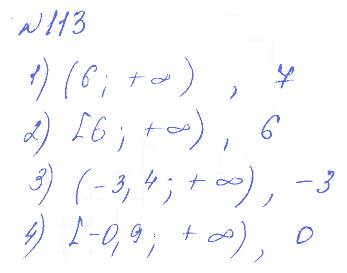 №113
1) (6; +∞), 7
2) [6; +∞), 6
3) (-3,4; +∞), -3
4) [-0,9; +∞), 0